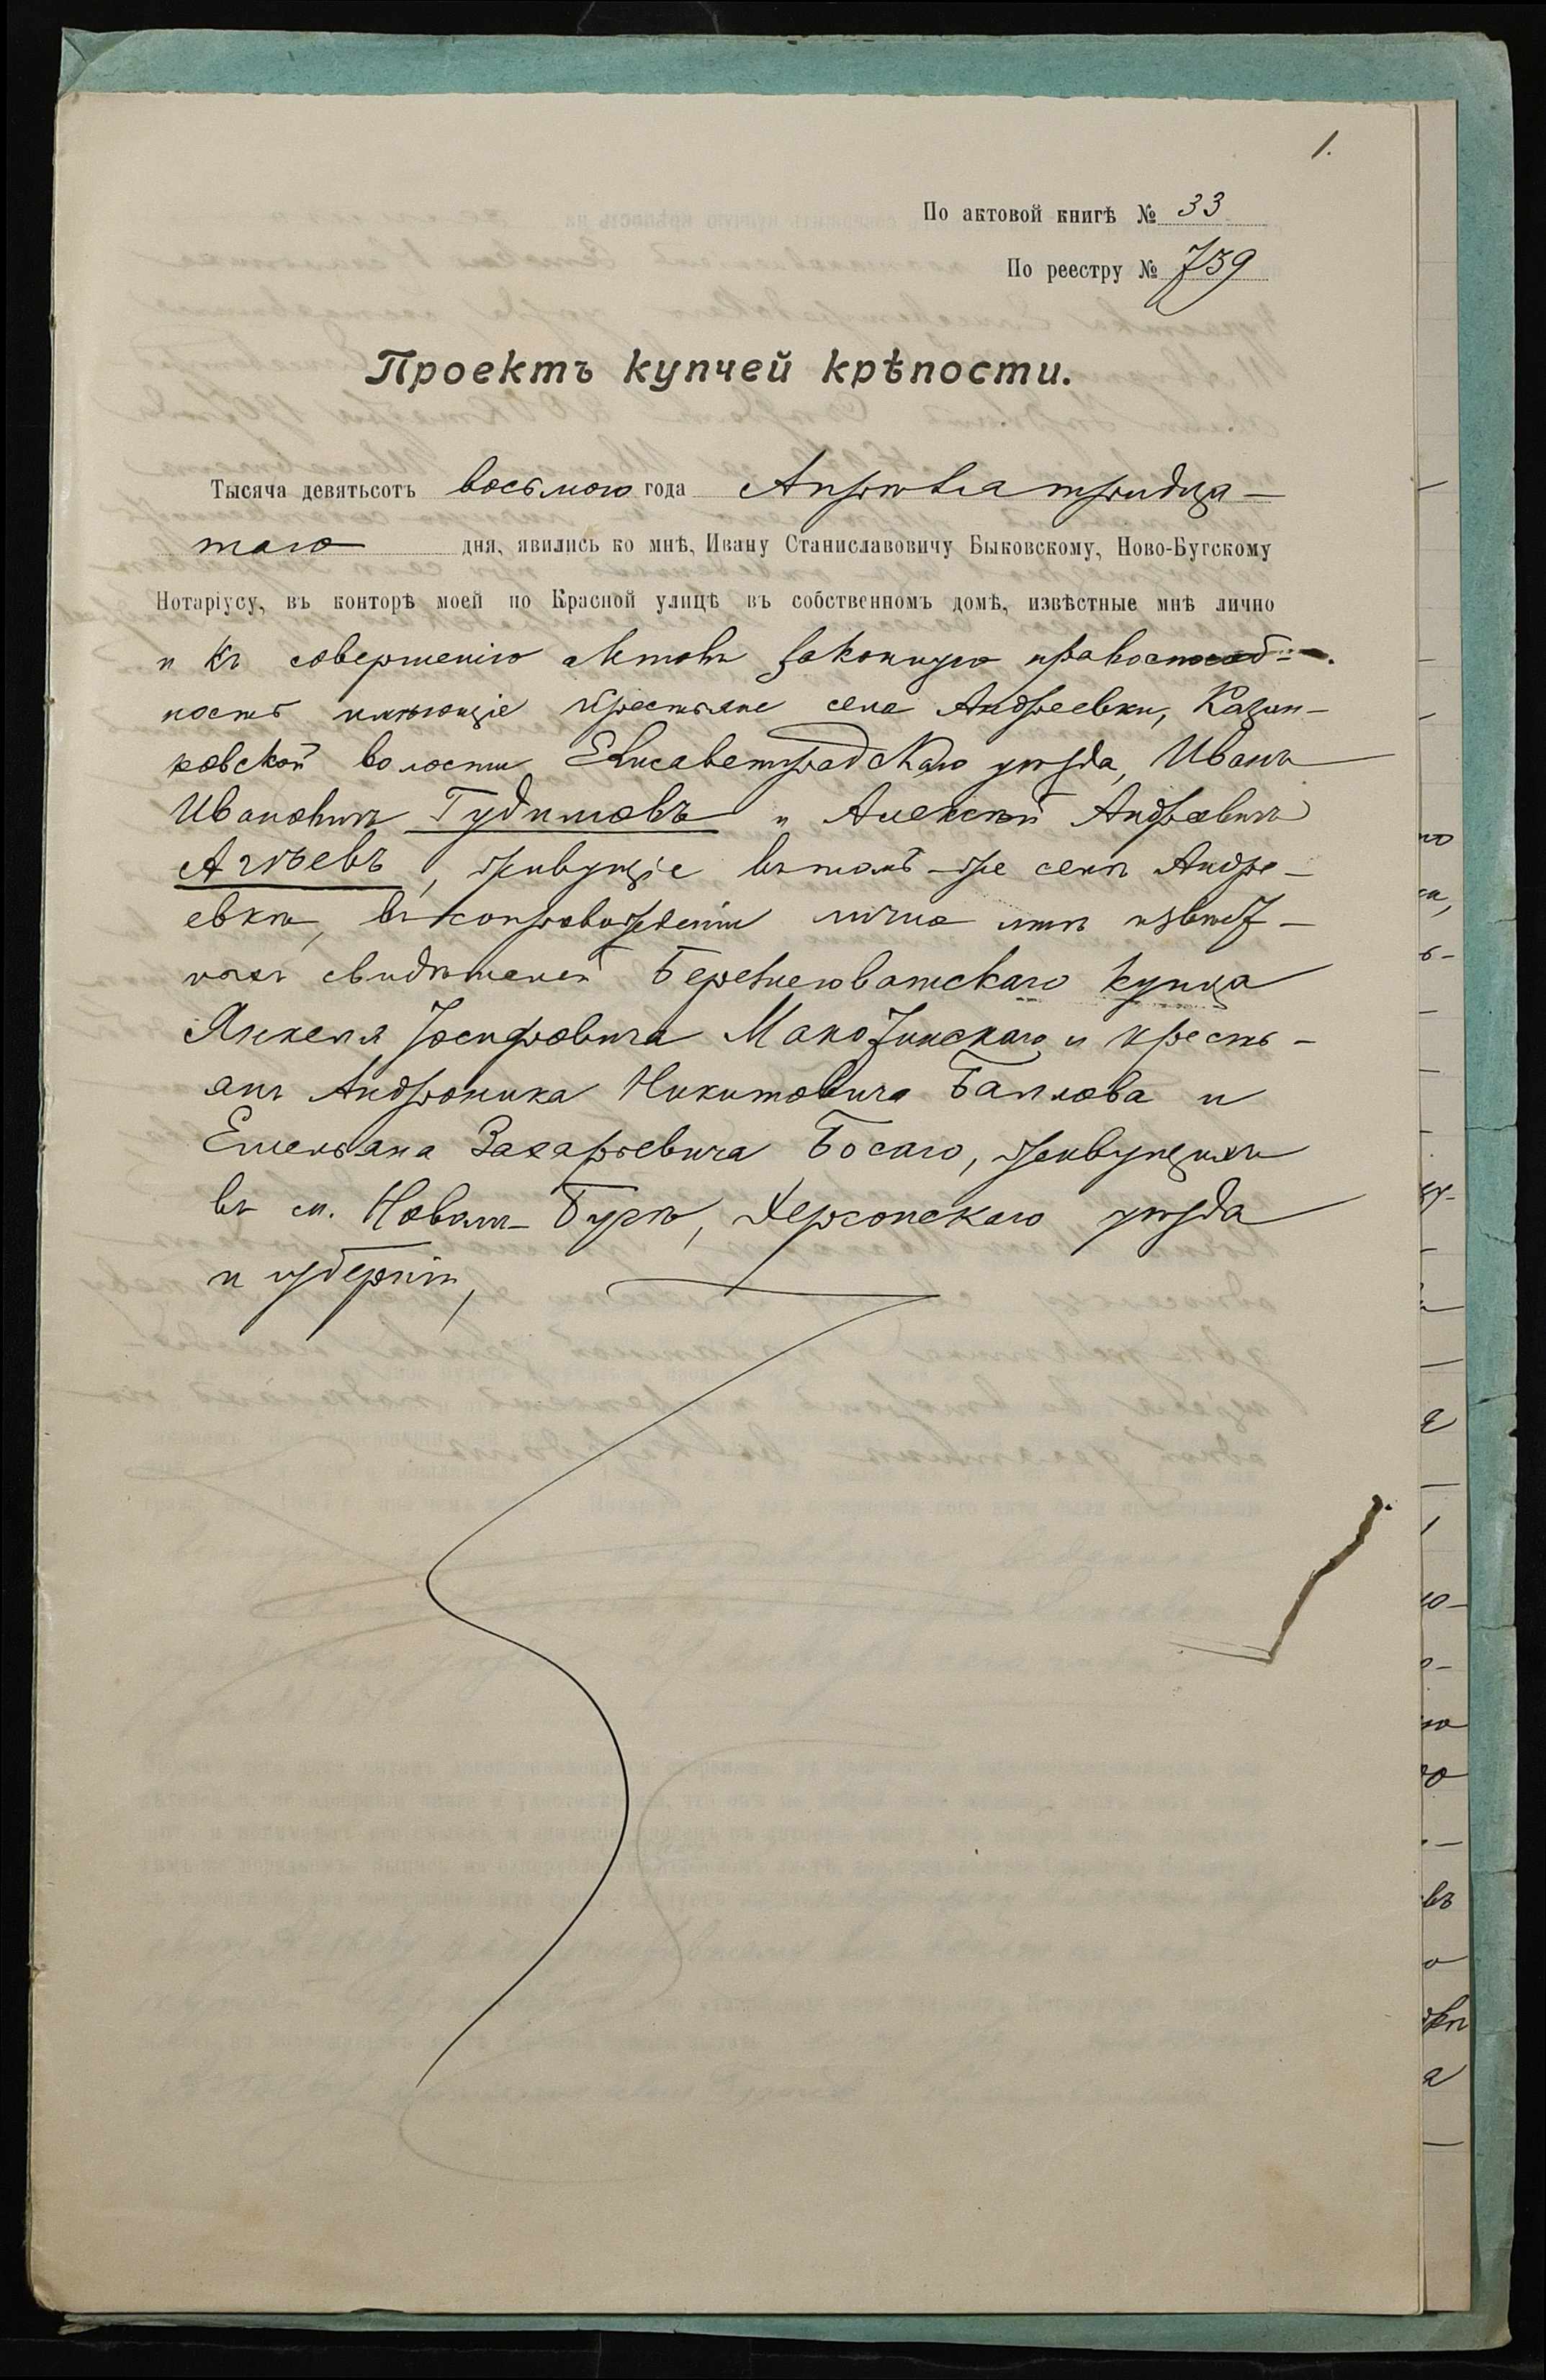 1.
По актовой книгѣ № 33
По реестру № 739
Проектъ купчей крѣпости.
Тысяча девятьсотъ восьмого года Апрѣля тридца-
таго дня, явились ко мнѣ, Ивану Станиславовичу Быковскому, Ново-Бугскому
Нотаріусу, въ конторѣ моей по Красной улицѣ въ собственномъ домѣ, извѣстные мнѣ лично
и къ совершенію актовъ законную правоспособ-
ность имѣющіе крестьяне села Андреевки, Казан-
ковской волости Елисаветградскаго уѣзда, Иванъ
Ивановичъ Гудимовъ и Алексѣй Андреевичъ
Агѣевъ, живущіе въ томъ-же селѣ Андре-
евкѣ, въ сопровожденіи лично мнѣ извѣст-
ныхъ свидѣтелей Березнеговатскаго купца
Янкеля Іосифовича Макозинскаго и кресть-
янъ Андроника Никитовича Баглова и
Емельяна Захарьевича Босаго, живущихъ
въ м. Новомъ-Бугѣ, Херсонскаго уѣзда
и губерніи,